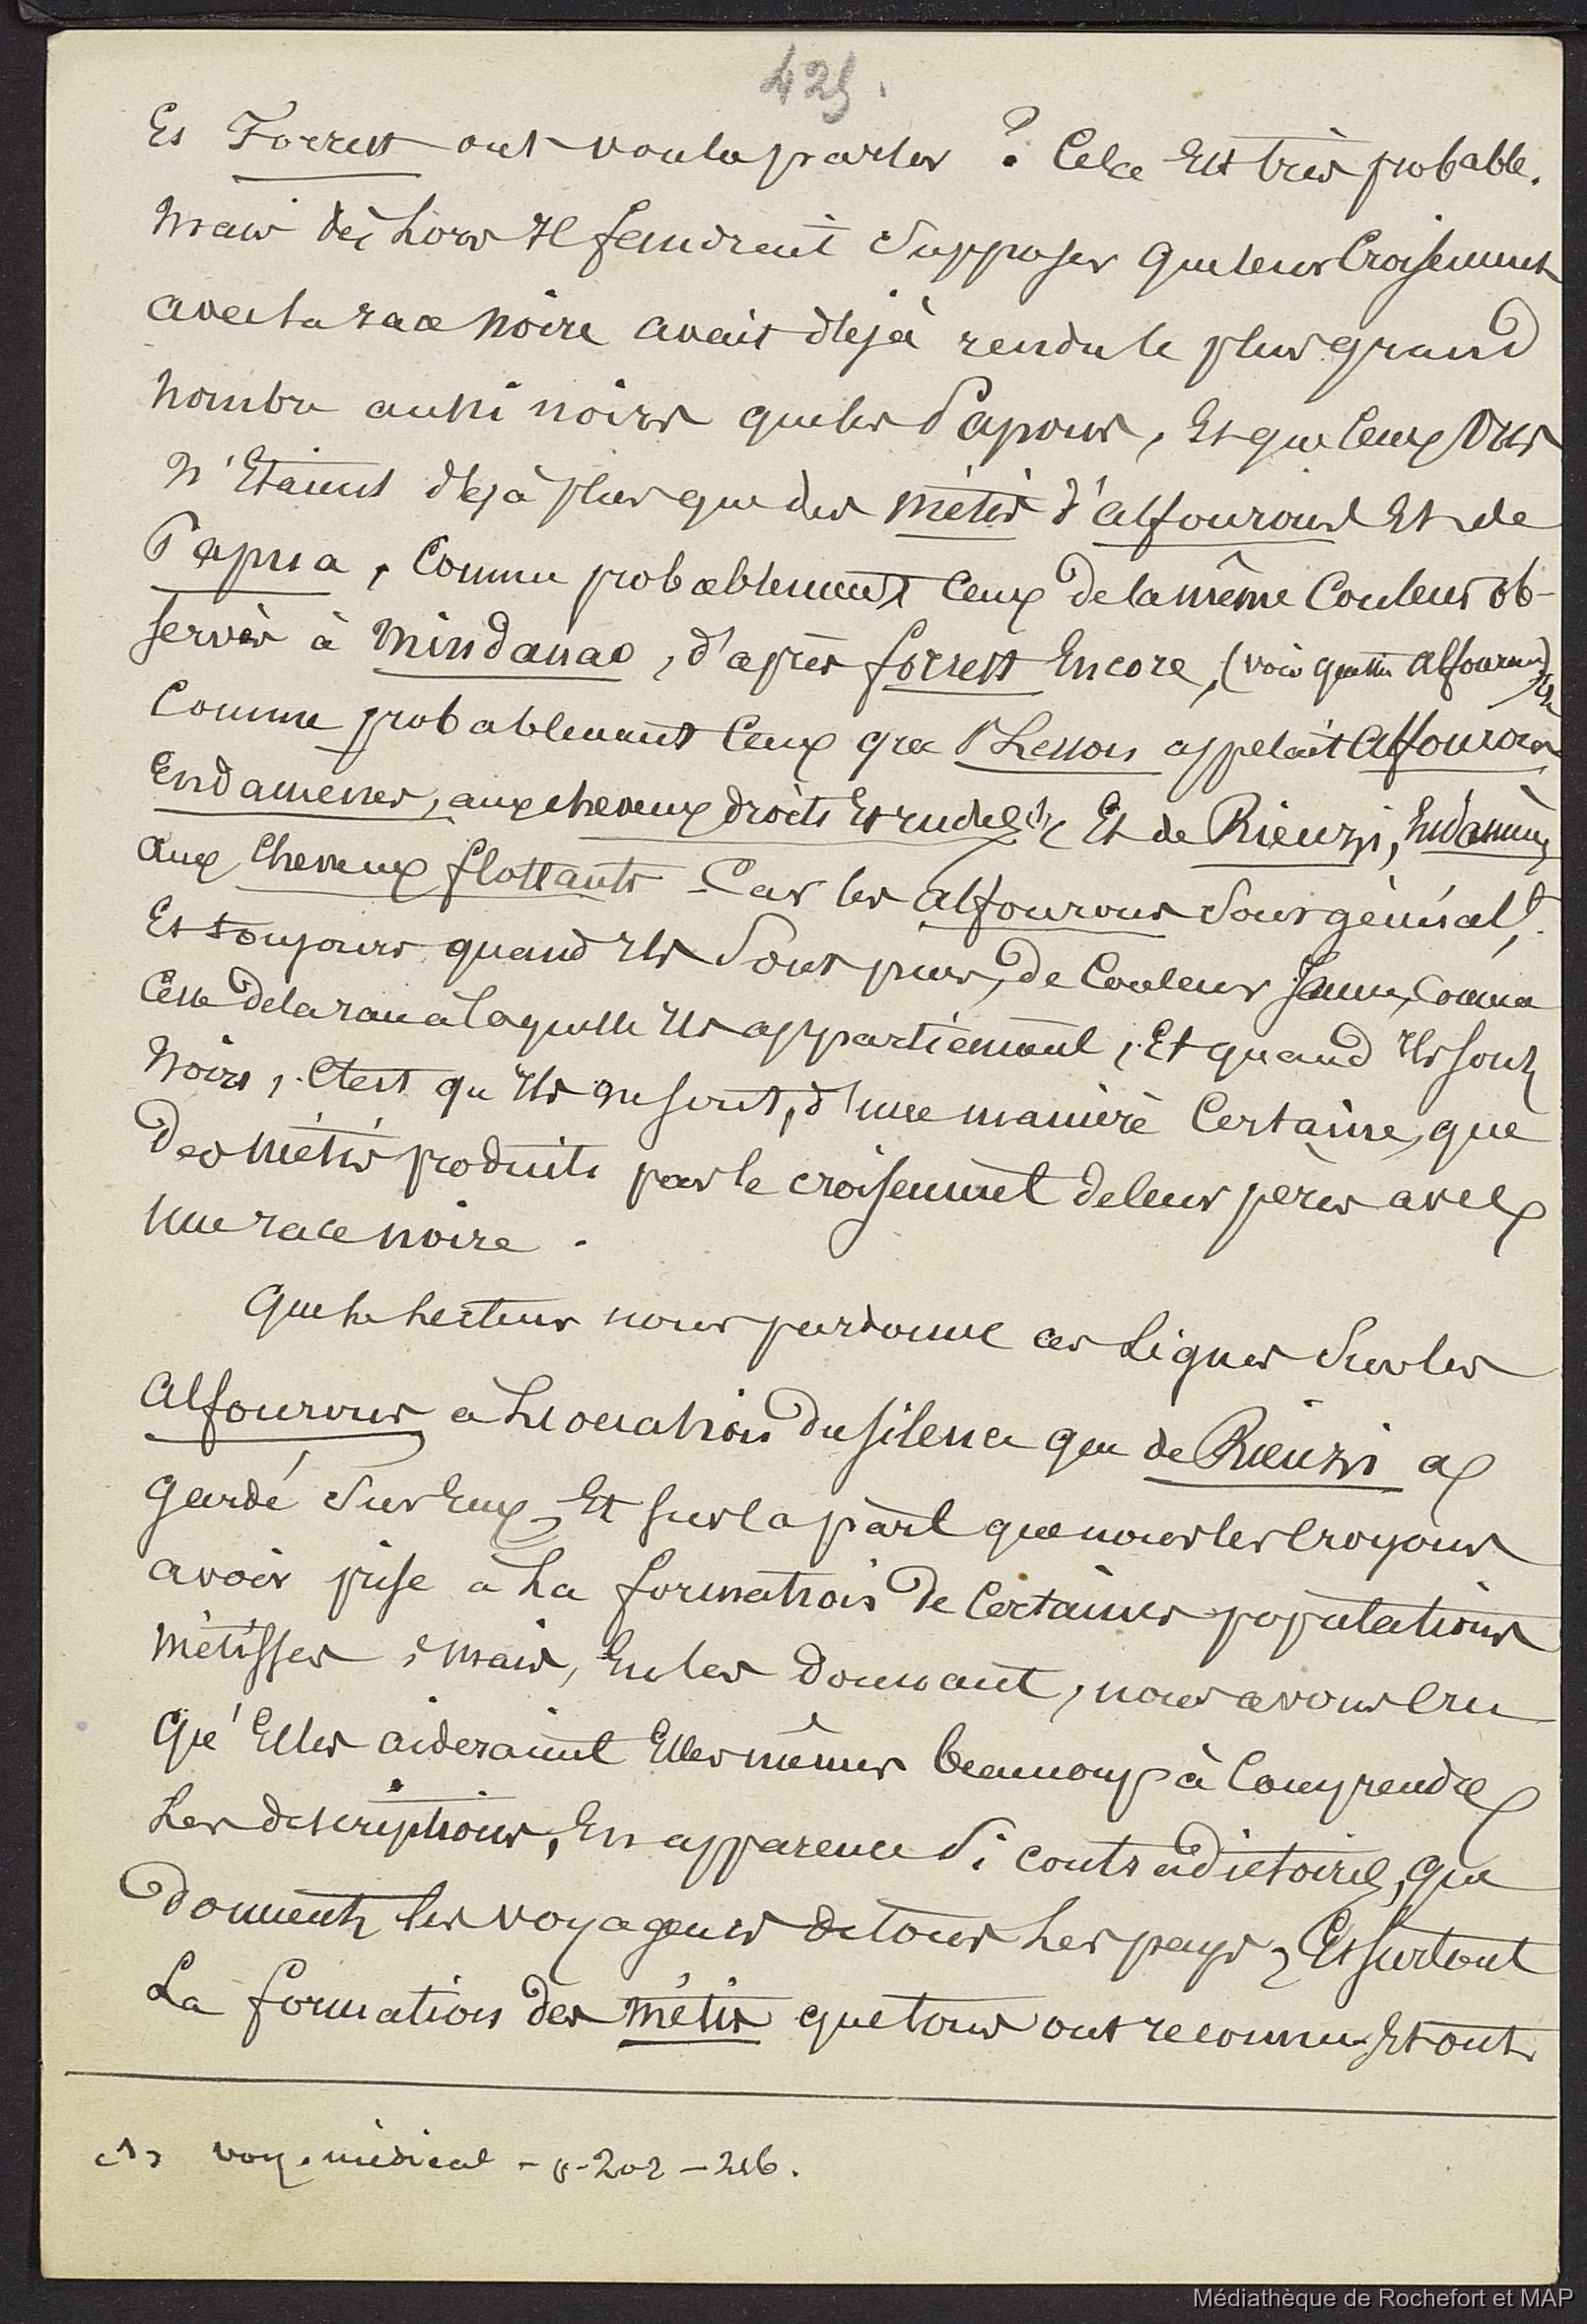 425.
Et Forrest ont voulu parler ? Cela Est très probable.
Mais dès Lors Il faudrait Supposer que leur Croisement
avec la race noire avait déjà rendu le plus grand
nombre aussi noirs que les Papous, Et que Ceux
N'Etaient déjà plus que des métis d'alfourous Et de
Papua, Comme probablement Ceux de la même Couleur ob-
servés à Mindanao, d'après forrest Encore, (voir alfourous) Et
Comme probablement Ceux que P Lesson appelait Alfourous
Endamenes, aux cheveux droits Et rudes (1) Et de Rienzi, Endamènes
aux Cheveux flottants. Car les alfourous Sont généralt,
Et toujours quand Ils Sont purs, de Couleur Jaune, Comme
Celle de la race à laquelle Ils appartiennent, Et quand Ils sont
Noirs, C'est qu'Ils ne sont, d'une manière Certaine, que
Des Métis produits par le croisement de leurs pères avec
une race noire.
Que le Lecteur nous pardonne ces Lignes Sur les
Alfourous à L'occasion du silence que de Rienzi a
gardé Sur Eux, Et sur la part que nous les Croyons
avoir prise à La formation De Certaines populations
métisses ; mais, En les donnant, nous avons Cru
Qu'Elles aideraient Elles mêmes beaucoup à Comprendre
Les descriptions, En apparence Si contradictoires, que
Donnent les voyageurs de tous Les pays, Et surtout
La formation des métis que tous ont reconnu Et ont
(1) voy. médical - p. 202 - 206.
Médiathèque de Rochefort et MAP